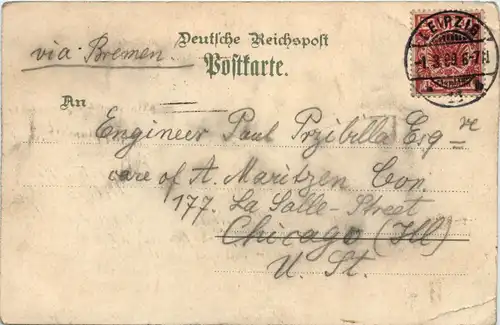 via Bremen.
Deutsche Reichspost
Postkarte.
LEIPZIG
An
Engineer Paul Przibilla Esq re
care of A. Maritzen Cor.
177. La Salle-Street
Chicago (Ill)
U. St.